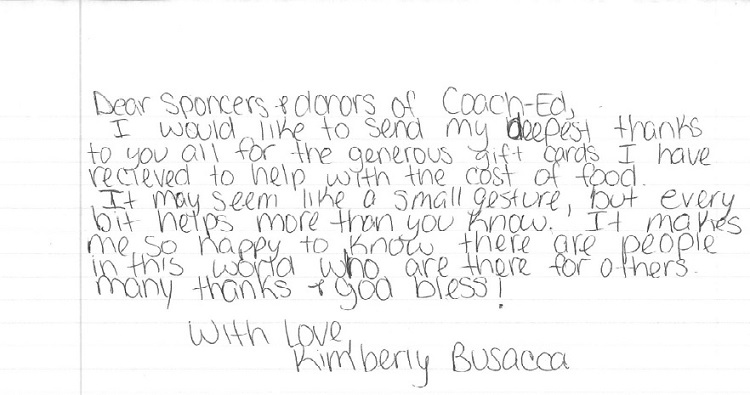 Dear Sponcers & donors of Coach-Ed,
I would like to send my deepest thanks
to you all for the generous gift cards I have
recieved to help with the cost of food.
It may seem like a small gesture, but every
bit helps more than you know. It makes
me so happy to know there are people
in this world who are there for others.
many thanks & god bless!
With Love,
Kimberly Busacca